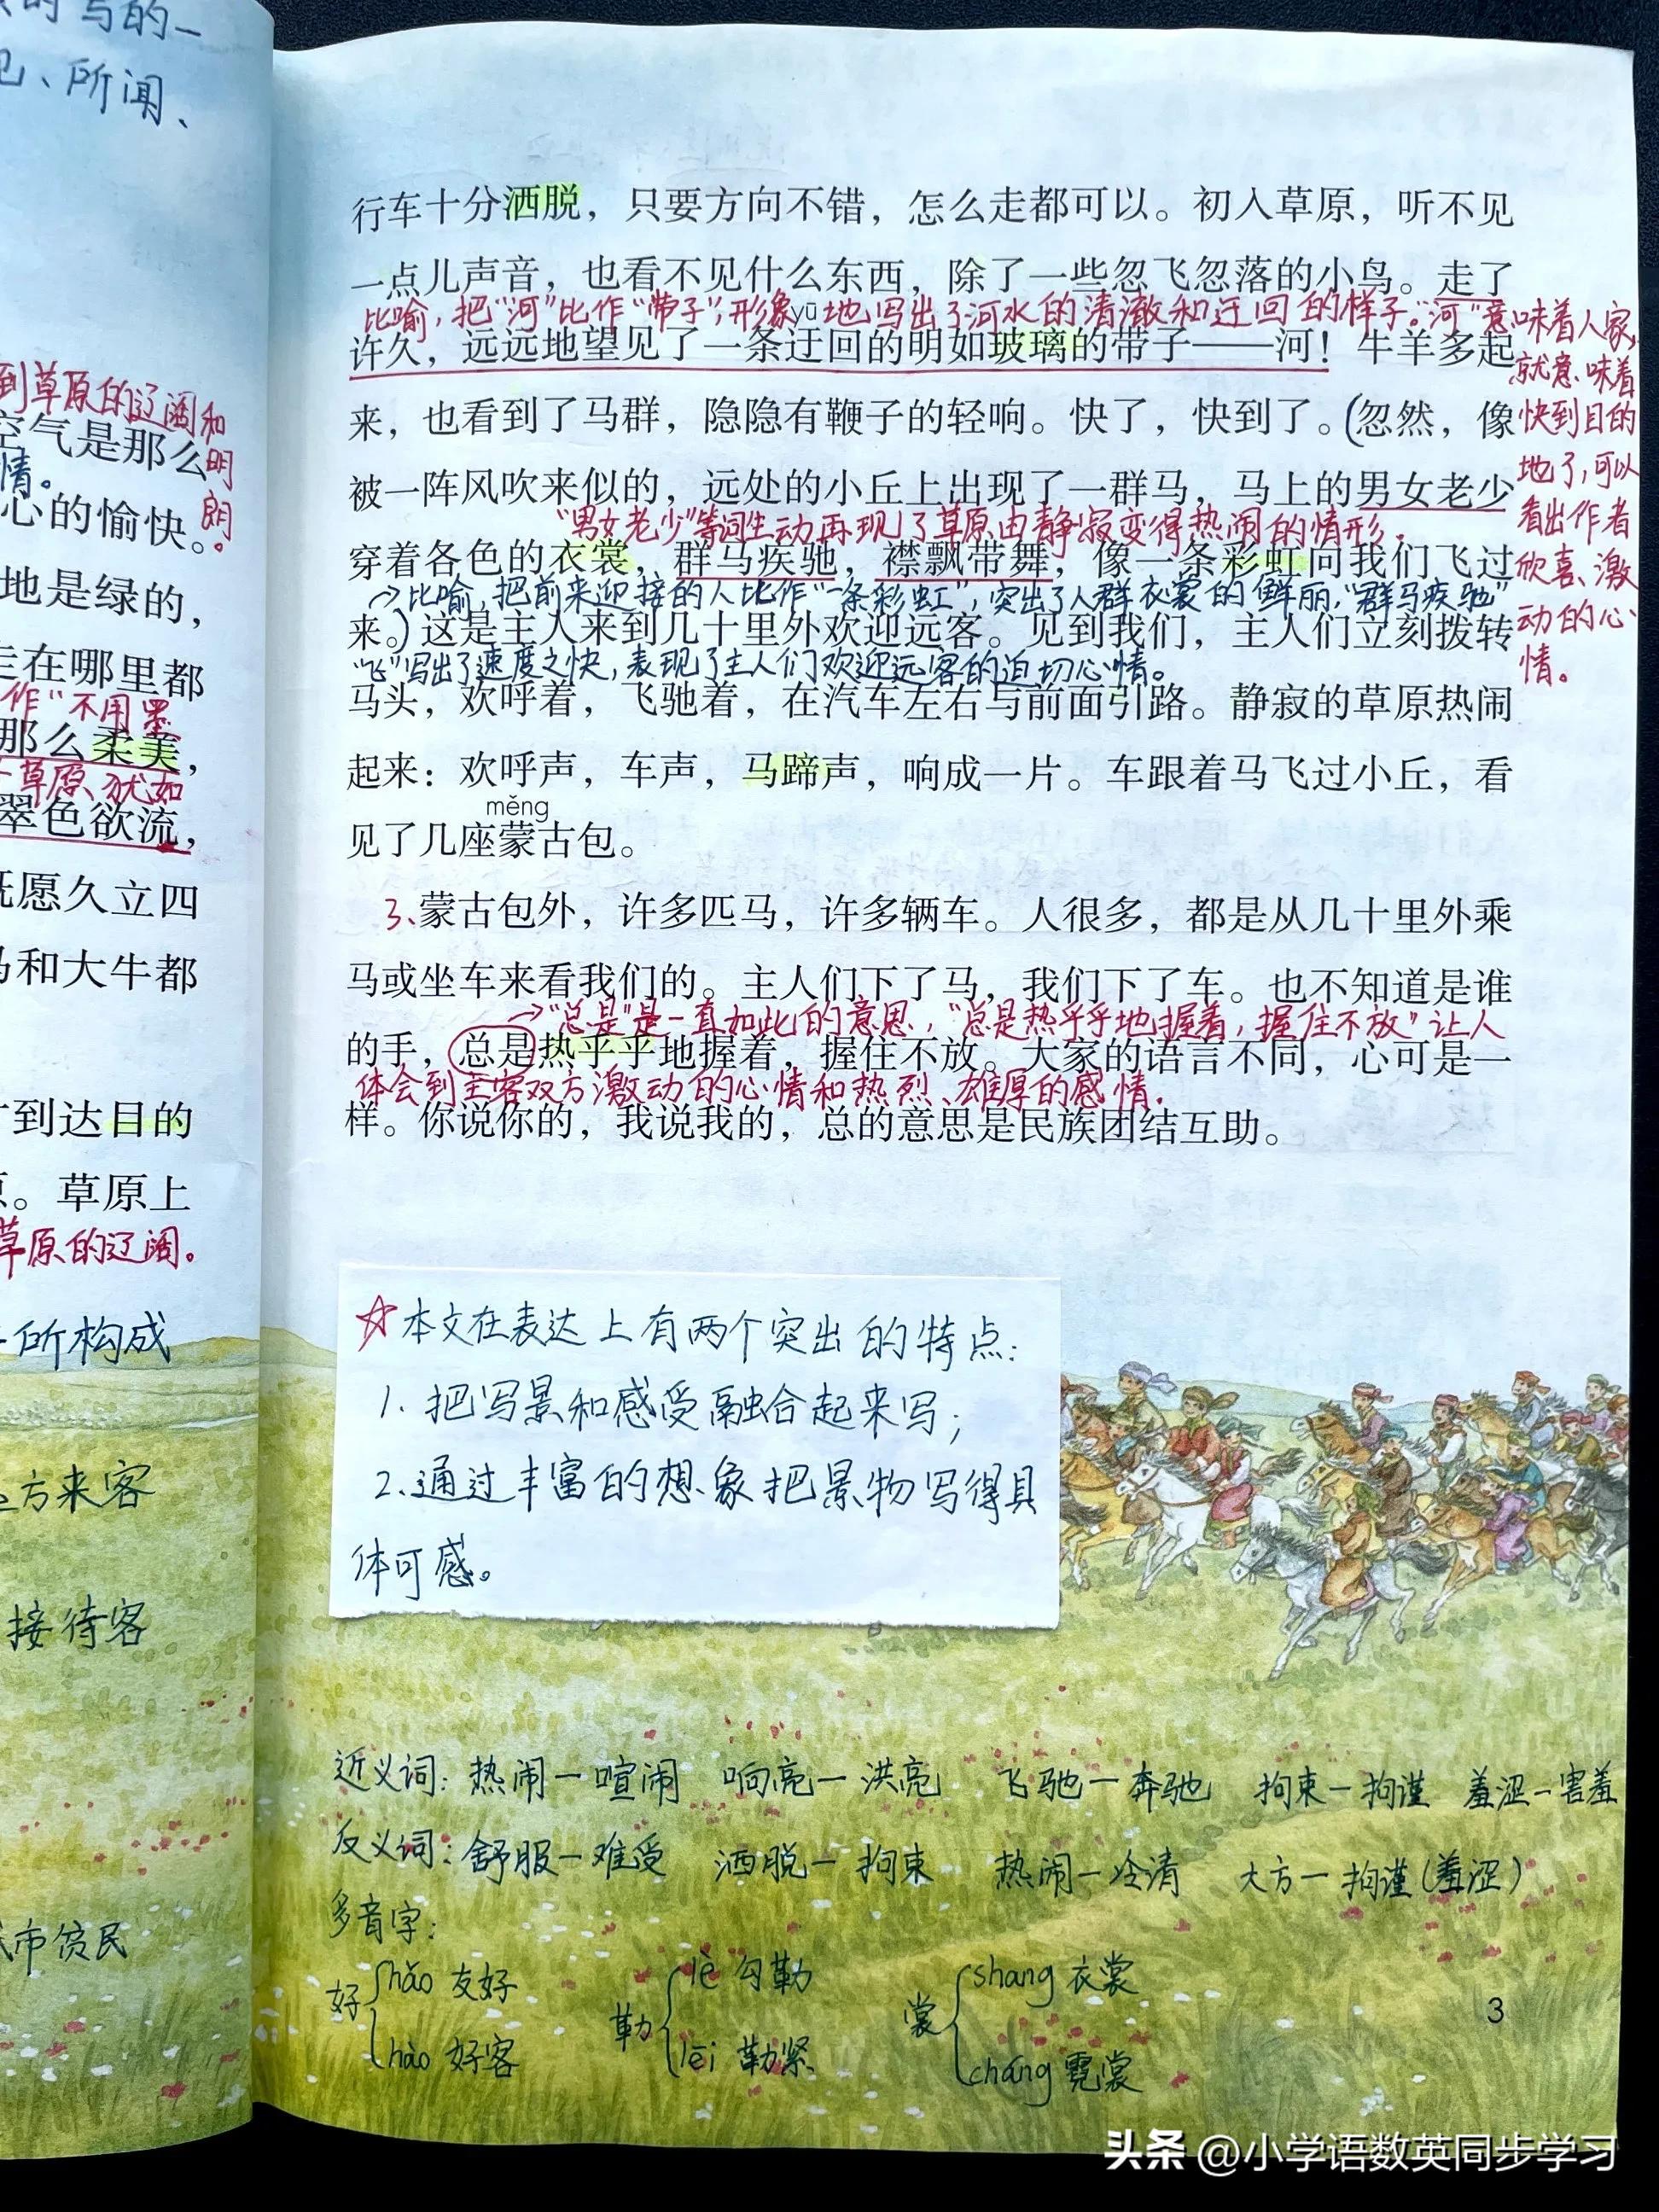 的写的一
见、所闻、
到草原的辽阔和
空气是那么明
情。
朗。
心的愉快。
地是绿的，
走在哪里都
作“不用墨
那么柔美，
草原、犹如
翠色欲流，
既愿久立四
马和大牛都
到达目的
原。草原上
草原的辽阔。
所构成
方来客
接待客
市贫民
行车十分洒脱，只要方向不错，怎么走都可以。初入草原，听不见
一点儿声音，也看不见什么东西，除了一些忽飞忽落的小鸟。走了
比喻，把“河”比作“带子”，形象地写出了河水的清澈和迂回的样子。“河”意味着人家，
yū
许久，远远地望见了一条迂回的明如玻璃的带子——河！牛羊多起
就意味着
来，也看到了马群，隐隐有鞭子的轻响。快了，快到了。(忽然，像
快到目的
地了，可以
被一阵风吹来似的，远处的小丘上出现了一群马，马上的男女老少
看出作者
“男女老少”等词生动再现了草原由静寂变得热闹的情形。
穿着各色的衣裳，群马疾驰，襟飘带舞，像一条彩虹向我们飞过
欣喜、激
→比喻，把前来迎接的人比作“一条彩虹”，突出了人群衣裳的鲜丽，“群马疾驰”
来。)这是主人来到几十里外欢迎远客。见到我们，主人们立刻拨转
动的心
“飞”写出了速度之快，表现了主人们欢迎远客的迫切心情。
情。
马头，欢呼着，飞驰着，在汽车左右与前面引路。静寂的草原热闹
起来：欢呼声，车声，马蹄声，响成一片。车跟着马飞过小丘，看
měng
见了几座蒙古包。
3、蒙古包外，许多匹马，许多辆车。人很多，都是从几十里外乘
马或坐车来看我们的。主人们下了马，我们下了车。也不知道是谁
→“总是”是一直如此的意思，“总是热乎乎地握着，握住不放”让人
的手，总是热乎乎地握着，握住不放。大家的语言不同，心可是一
体会到主客双方激动的心情和热烈、雄厚的感情.
样。你说你的，我说我的，总的意思是民族团结互助。
☆本文在表达上有两个突出的特点：
1. 把写景和感受融合起来写；
2.通过丰富的想象把景物写得具
体可感。
近义词：热闹—喧闹 响亮—洪亮 飞驰—奔驰 拘束—拘谨 羞涩—害羞
反义词：舒服—难受 洒脱—拘束 热闹—冷清 大方—拘谨(羞涩)
多音字：
好 hǎo 友好
hào 好客
勒 lè 勾勒
lēi 勒紧
裳 shang 衣裳
cháng 霓裳
3
头条 @小学语数英同步学习